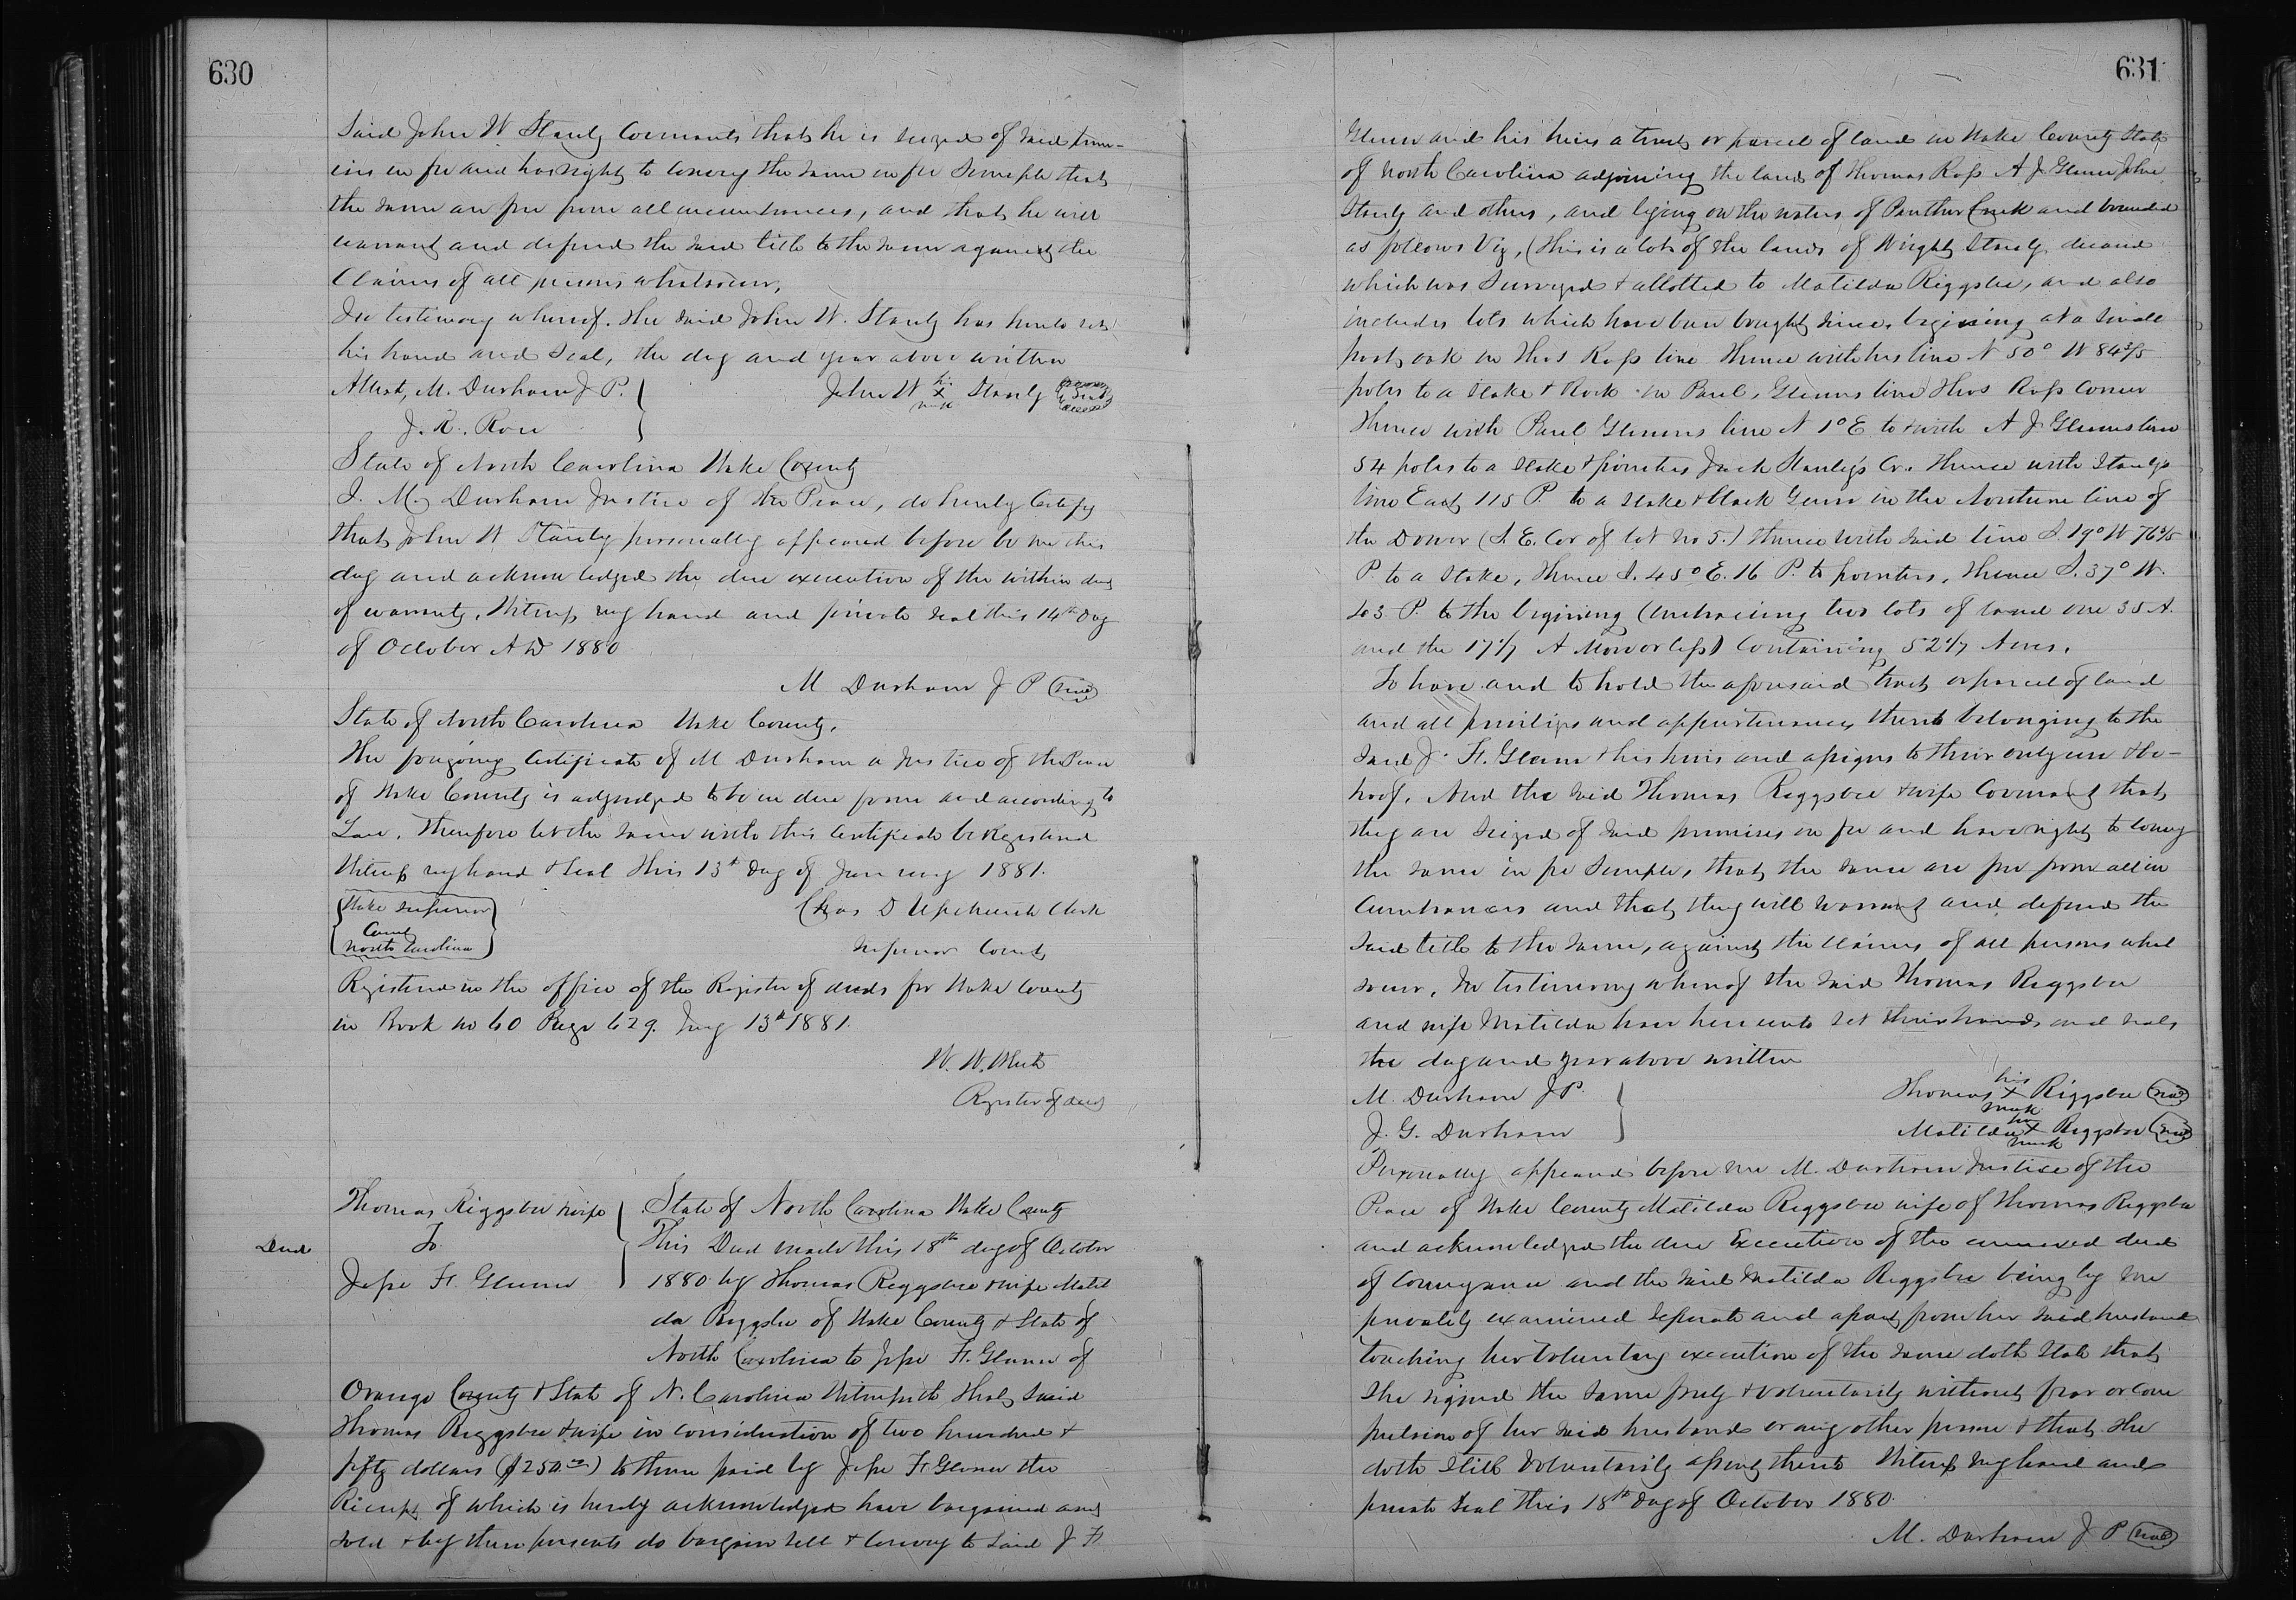 630
Said John W Stanly Covenants that he is seized of said prem-
eises in fee and has right to convey the same in fee Simple that
the same are free from all incumbrances, and that he will
warrant and defend the said title to the same against the
Claims of all persons whatsoever,
In testimony whereof. the said John W. Stanly has hereto set
his hand and Seal, the day and year above written
Attest, M. Durham J P. John W his X mark Stanly
J. R. Row
State of North Carolina Wake County
I. M. Durham Justice of the Peace, do hereby Certify
that John W Stanly personally appeared before be me this
day and acknowledged the due execution of the within deed
of warranty, Witness my hand and private seal this 14th day
of October A D 1880
M Durham J P (seal)
State of North Carolina Wake County.
The foregoing Certificate of M Durham a Justice of the Peace
of Wake County is adjudged to be in due form and according to
Law. Therefore let the same with this Certificate be Registered
Witness my hand & seal this 13th day of January 1881.
Wake Superior
Court
North Carolina
Chas D Upchurch Clerk
Superior Court
Registered in the office of the Register of deeds for Wake County
in Book no 60 Page 629. Jany 13th 1881.
W. W. White
Register of deeds
Thomas Riggsbee & wife
To
Deed
Jesse H. Glenn
State of North Carolina Wake County
This Deed made this 18th day of October
1880 by Thomas Riggsbee & wife Matil
da Riggsbee of Wake County & State of
North Carolina to Jesse H. Glenn of
Orange County & State of N. Carolina Witnesseth that said
Thomas Riggsbee & wife in consideration of two hundred &
fifty dollars ($250.00) to them paid by Jesse H Glenn the
Receipt of which is hereby acknowledged have bargained and
sold & by these presents do bargain sell & convey to said J H
631
Glenn and his heirs a tract or parcel of land in Wake County State
of North Carolina adjoining the lands of Thomas Ross A J. Glenn John
Stanly and others, and lying on the waters of Panther Creek and bounded
as follows Viz, (this is a lot of the lands of Wright Stanly deceased
which was Surveyed & allotted to Matilda Riggsbee, and also
includes lots which have been bought since. begining at a small
post oak in Thos Ross line thence with his line N 50° W 84 3/5
poles to a stake & Rock in Paul, Glenns line Thos Ross Corner
thence with Paul Glenns line N 1° E to & with A J Glenns line
54 poles to a stake & pointers Jack Stanley's Cr. thence with Stanly's
line East 115 P. to a stake & black Gum in the Northern line of
the Dower (S. E. Cor of lot No 5.) thence with said line S. 19° W 76 4/5
P. to a stake, thence S. 45° E. 16 P. to pointers, thence S. 37° W.
403 P. to the begining (Embracing two lots of land one 35 A.
and the 17 1/7 A More or less) Containing 52 1/7 Acres.
To have and to hold the aforesaid tract or parcel of land
and all privileges and appurtenances thereto belonging to the
said J. H. Glenn & his heirs and assigns to their only use & be-
hoof. And the said Thomas Riggsbee & wife Covenant that
they are seized of said premises in fee and have right to convey
the same in fee Simple, that the same are free from all in
cumbrances and that they will warrant and defend the
said title to the same, against the claims of all persons what
soever, In testimony whereof the said Thomas Riggsbee
and wife Matilda have hereunto set their hands and seals
the day and year above written
M. Durham J P. Thomas his X mark Riggsbee (seal)
J. G. Durham Matilda her X mark Riggsbee (seal)
Personally appeared before me M. Durham Justice of the
Peace of Wake County Matilda Riggsbee wife of Thomas Riggsbee
and acknowledged the due Execution of the annexed deed
of Conveyance and the said Matilda Riggsbee being by me
privately examined seperate and apart from her said husband
touching her Voluntary execution of the same doth state that
she signed the same freely & voluntarily without fear or com
pulsion of her said husband or any other person & that she
doth still Voluntarily assent thereto Witness my hand and
private seal this 18th day of October 1880.
M. Durham J P (seal)